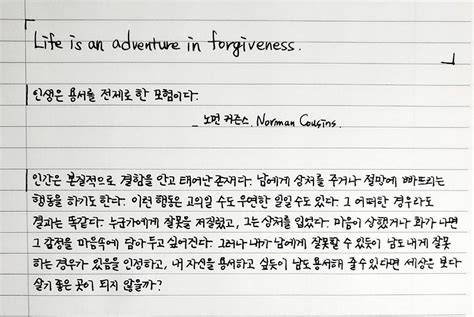 Life is an adventure in forgiveness.
인생은 용서를 전제로 한 모험이다.
노먼 커즌스. Norman Cousins.
인간은 본질적으로 결함을 안고 태어난 존재다. 남에게 상처를 주거나 절망에 빠뜨리는
행동을 하기도 한다. 이런 행동은 고의일 수도 우연한 일일 수도 있다. 그 어떠한 경우라도
결과는 똑같다. 누군가에게 잘못을 저질렀고, 그는 상처를 입었다. 마음이 상했거나 화가 나면
그 감정을 마음속에 담아 두고 싶어진다. 그러나 내가 남에게 잘못할 수 있듯이 남도 내게 잘못
하는 경우가 있음을 인정하고, 내 자신을 용서하고 싶듯이 남도 용서해 줄 수 있다면 세상은 보다
살기 좋은 곳이 되지 않을까?